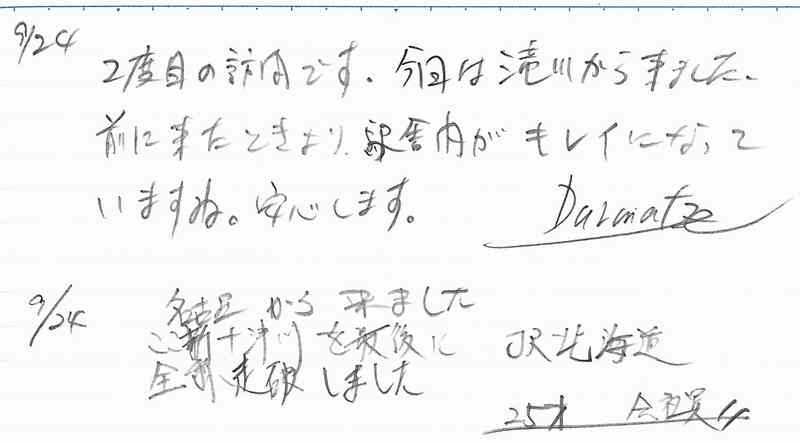 9/24
2度目の訪問です。今回は滝川から来ました。
前に来たときより、駅舎内がキレイになって
いますね。安心します。
9/24 名古屋から来ました
ここ新十津川を最後に JR北海道
全線走破しました
25才 会社員